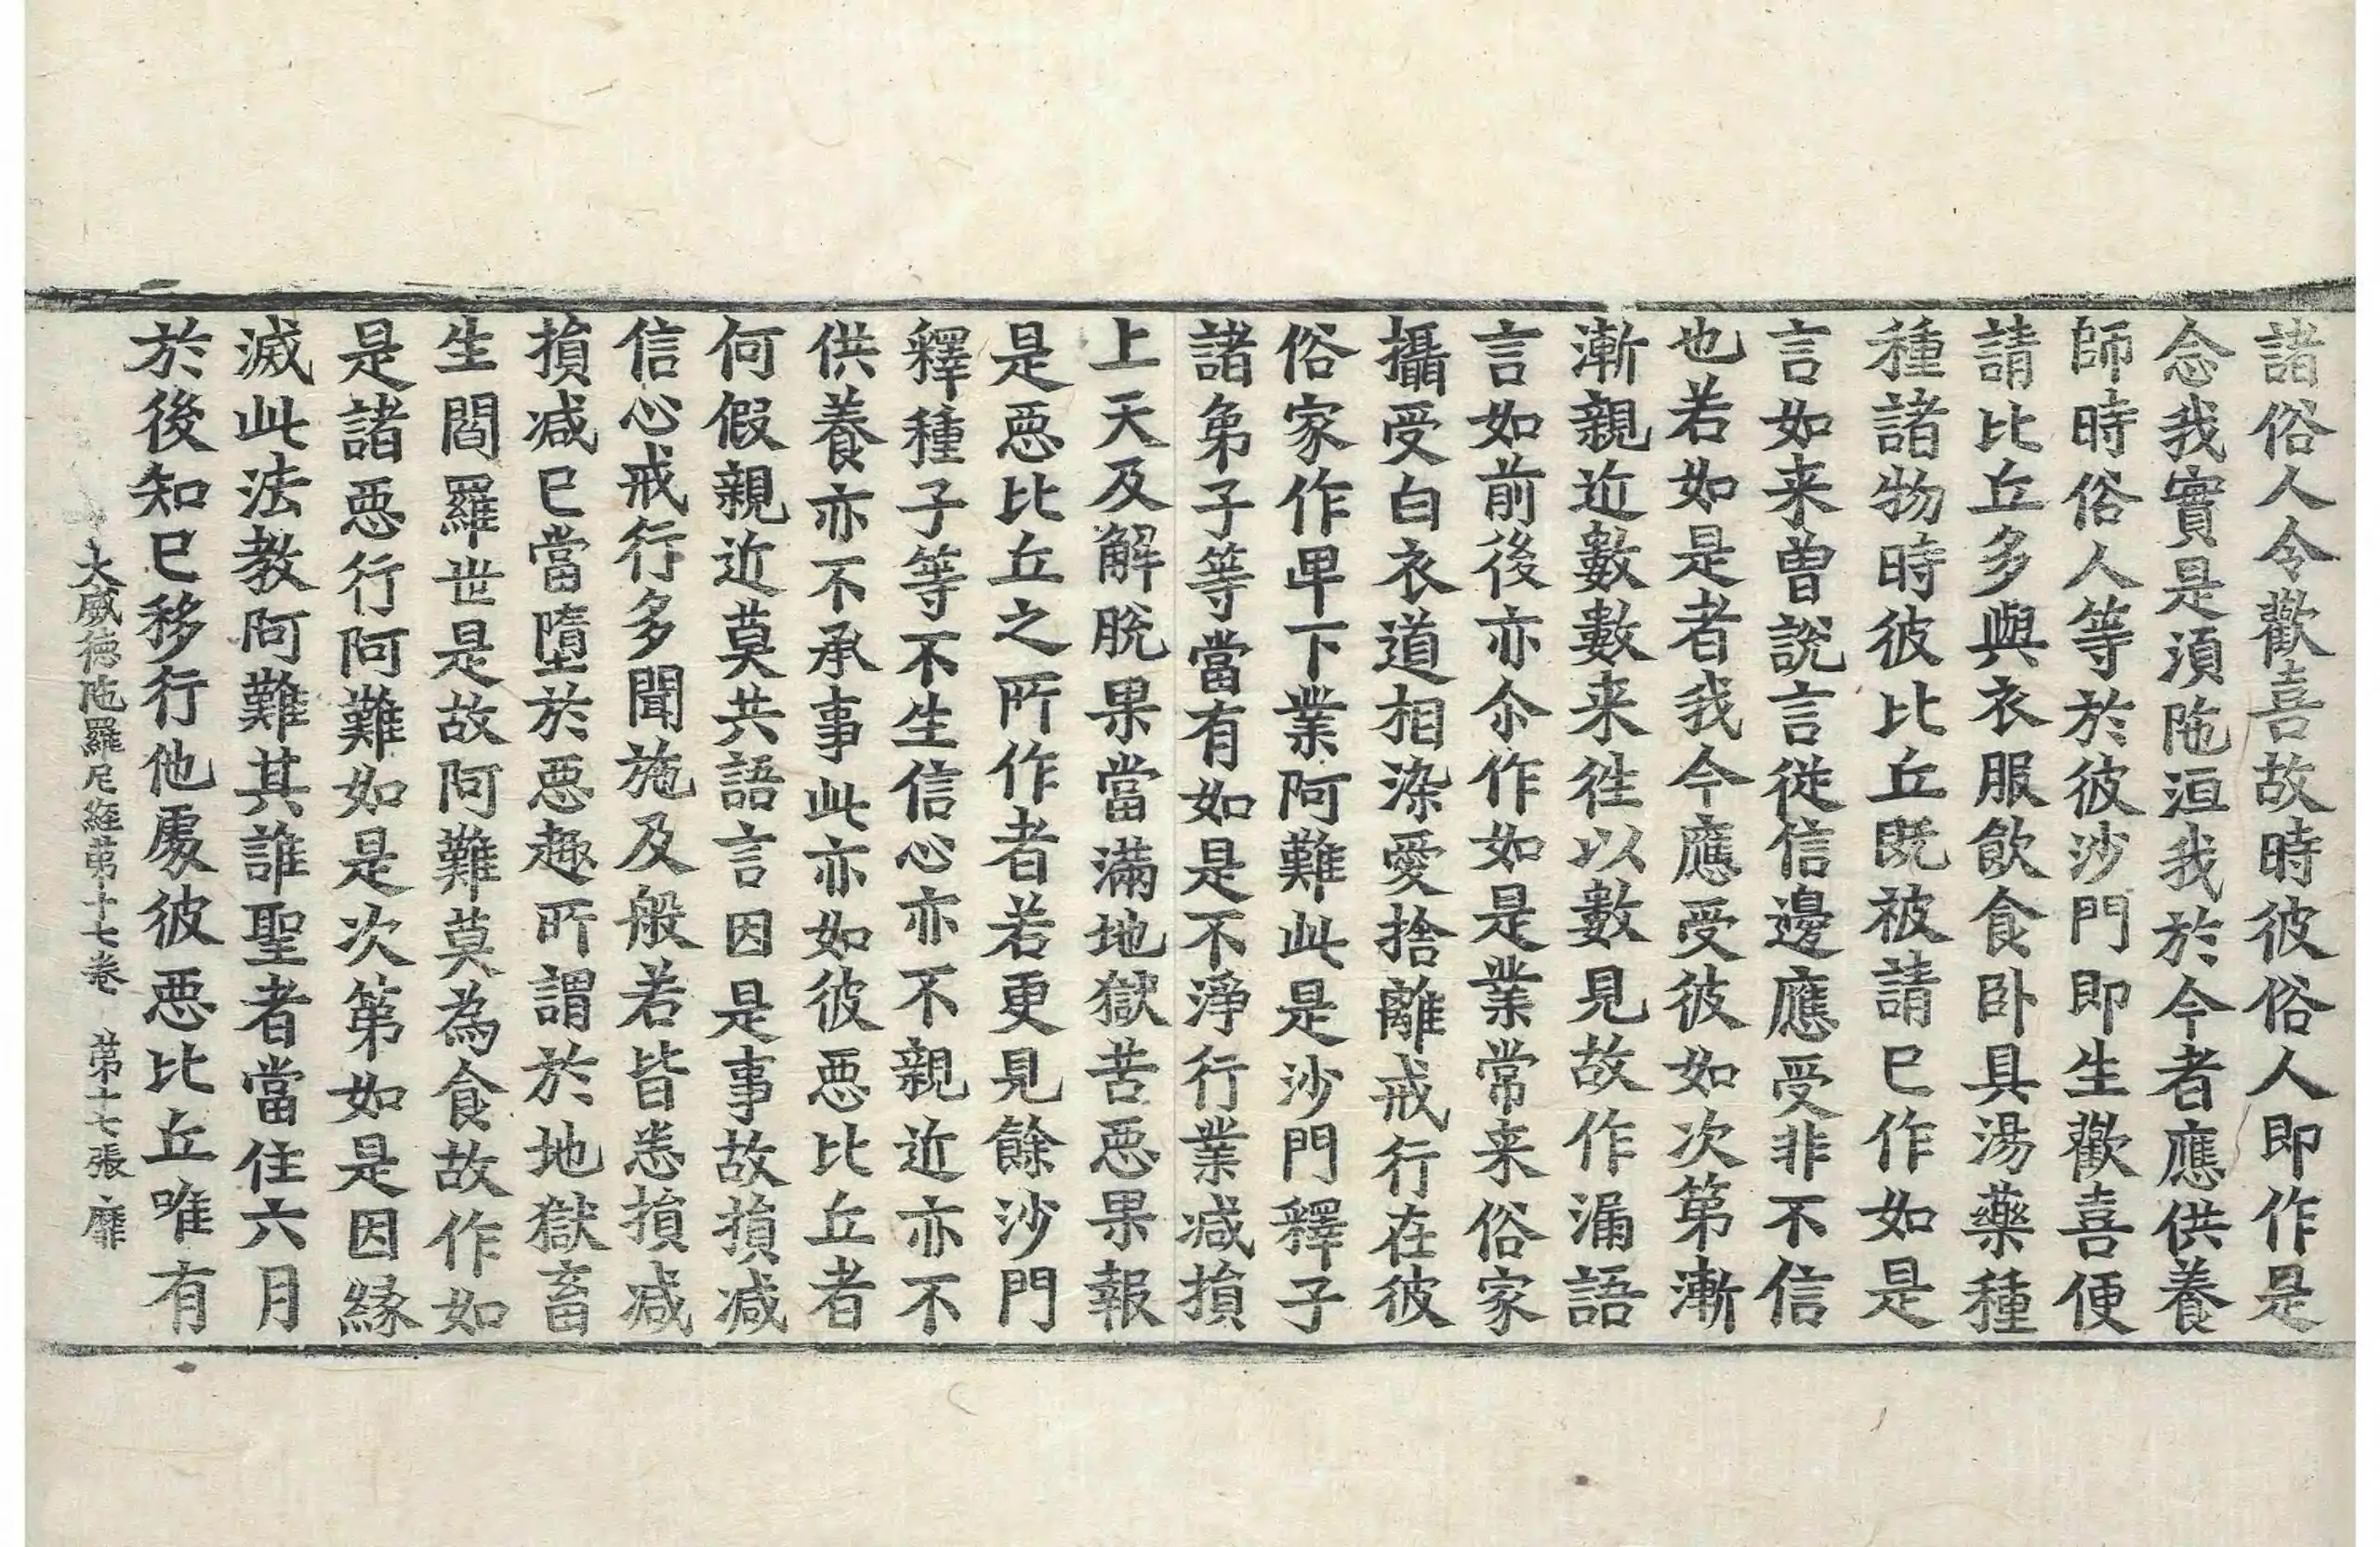 諸俗人令歡喜故時彼俗人即作是
念我實是湏陁洹我於今者應供養
師時俗人等於彼沙門即生歡喜便
請比丘多與衣服飲食卧具湯藥種
種諸物時彼比丘既被請已作如是
言如来曽說言從信邊應受非不信
也若如是者我今應受彼如次第漸
漸親近數數来往以數見故作漏語
言如前後亦尒作如是業常来俗家
攝受白衣道相染愛捨離戒行在彼
俗家作卑下業阿難此是沙門釋子
諸弟子等當有如是不淨行業减損
上天及解脫果當滿地獄苦惡果報
是惡比丘之所作者若更見餘沙門
釋種子等不生信心亦不親近亦不
供養亦不承事此亦如彼惡比丘者
何假親近莫共語言因是事故損减
信心戒行多聞施及般若皆悉損减
損减已當墮於惡趣所謂於地獄畜
生閻羅世是故阿難莫為食故作如
是諸惡行阿難如是次第如是因緣
滅此法教阿難其誰聖者當住六月
於後知已移行他處彼惡比丘唯有
大威德陁羅尼經第十七卷 第十七張 靡